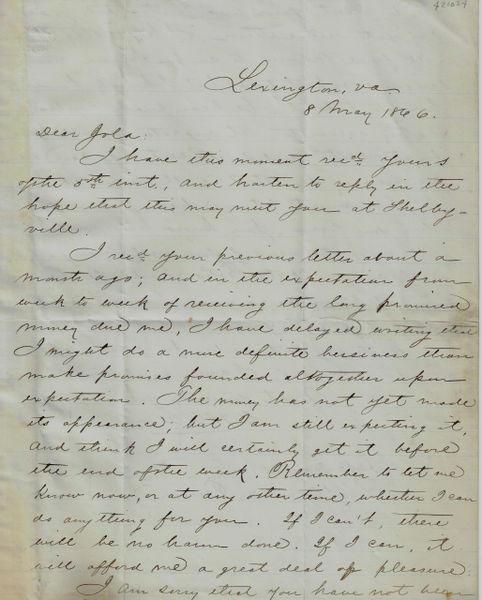 421024
Lexington, Va
8 May 1866.
Dear Jola:
I have this moment recd. yours
of the 5th inst., and hasten to reply in the
hope that this may meet you at Shelby-
ville.
I recd your previous letter about a
month ago; and in the expectation from
week to week of receiving the long promised
money due me, I have delayed writing that
I might do a more definite business than
make promises founded altogether upon
expectation. The money has not yet made
its appearance; but I am still expecting it,
and think I will certainly get it before
the end of the week. Remember to let me
know now, or at any other time, whether I can
do anything for you. If I can't, there
will be no harm done. If I can, it
will afford me a great deal of pleasure.
I am sorry that you have not been